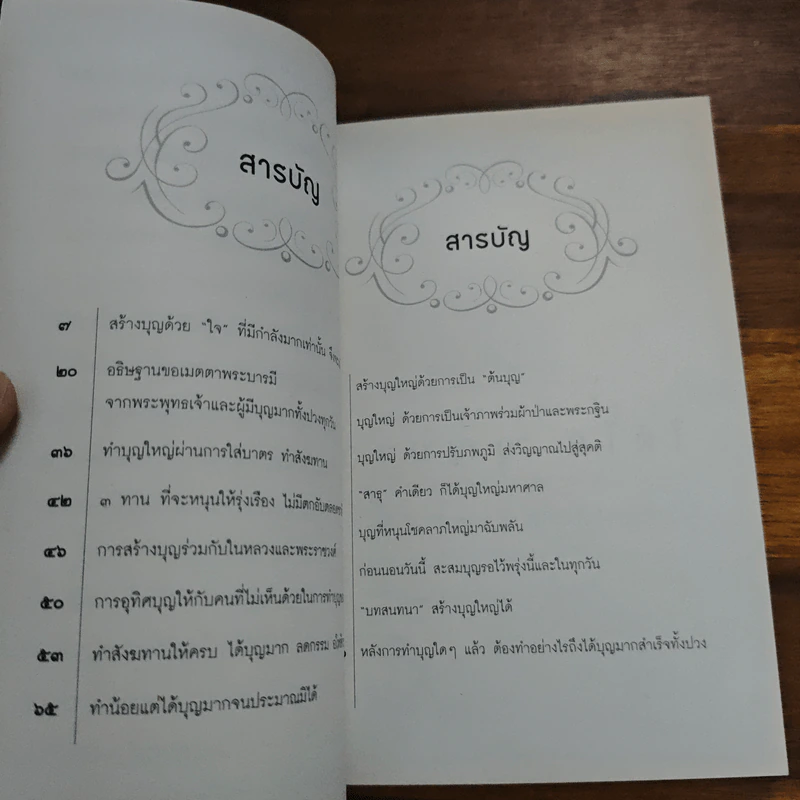 สารบัญ
๗ สร้างบุญด้วย "ใจ" ที่มีกำลังมากเท่านั้น
๒๐ อธิษฐานขอเมตตาพระบารมี
จากพระพุทธเจ้าและผู้มีบุญมากทั้งปวงทุกวัน
๓๖ ทำบุญใหญ่ผ่านการใส่บาตร ทำสังฆทาน
๔๒ ๓ ทาน ที่จะหนุนให้รุ่งเรือง ไม่มีตกอับตลอด
๔๖ การสร้างบุญร่วมกับในหลวงและพระราชวงศ์
๕๐ การอุทิศบุญให้กับคนที่ไม่เห็นด้วยในการทำบุญ
๕๓ ทำสังฆทานให้ครบ ได้บุญมาก ลดกรรม
๖๕ ทำน้อยแต่ได้บุญมากจนประมาณมิได้
สารบัญ
สร้างบุญใหญ่ด้วยการเป็น "ต้นบุญ"
บุญใหญ่ ด้วยการเป็นเจ้าภาพร่วมผ้าป่าและพระกฐิน
บุญใหญ่ ด้วยการปรับภพภูมิ ส่งวิญญาณไปสู่สุคติ
"สาธุ" คำเดียว ก็ได้บุญใหญ่มหาศาล
บุญที่หนุนโชคลาภใหญ่มาฉับพลัน
ก่อนนอนวันนี้ สะสมบุญรอไว้พรุ่งนี้และในทุกวัน
"บทสนทนา" สร้างบุญใหญ่ได้
หลังการทำบุญใดๆ แล้ว ต้องทำอย่างไรถึงได้บุญมากสำเร็จทั้งปวง